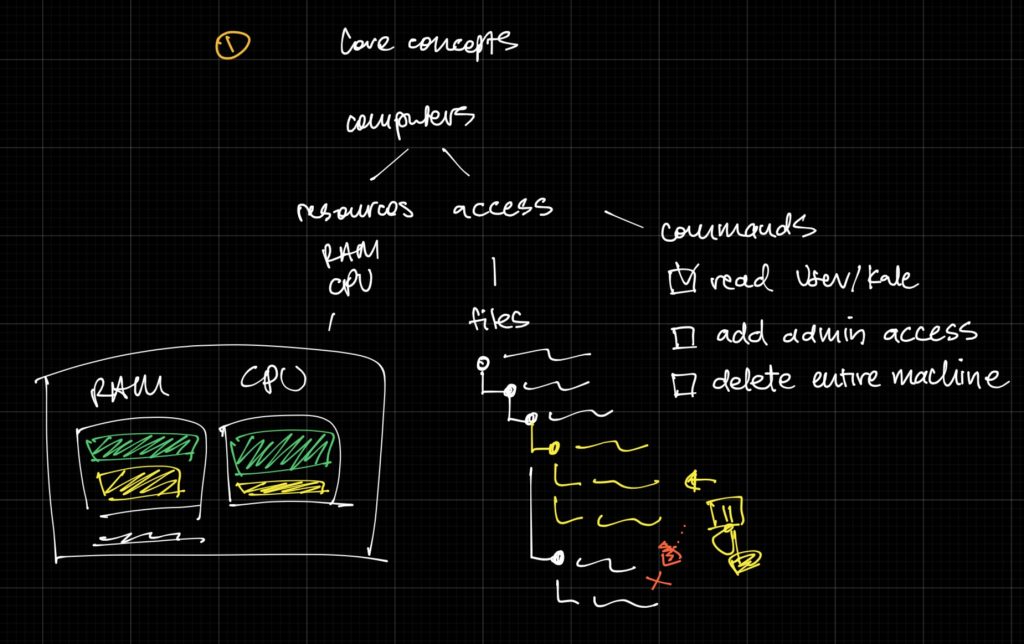 1 Core concepts
computers
resources access
RAM
CPU
files
RAM CPU
commands
read User/kale
add admin access
delete entire machine